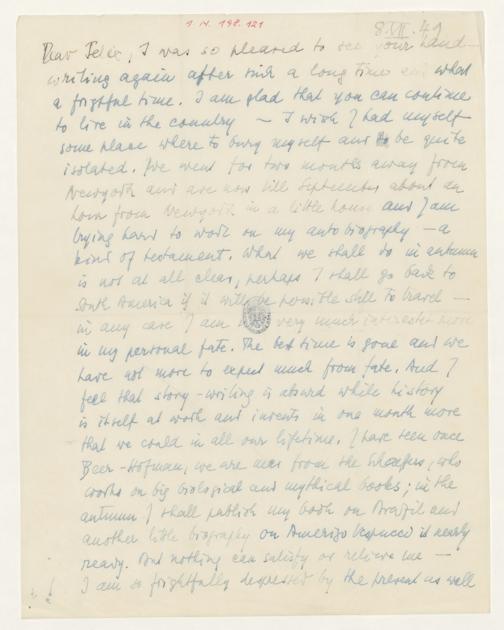 I.N. 198.121
8.VII.41
Dear Felix, I was so pleased to see your hand-
writing again after such a long time and what
a frightful time. I am glad that you can continue
to live in the country — I wish I had myself
some place where to bury myself and to be quite
isolated. We went for two months away from
Newyork and are now till September about an
hour from Newyork in a little house and I am
trying hard to work on my autobiography — a
kind of testament. What we shall do in autumn
is not at all clear, perhaps I shall go back to
South America if it will be possible still to travel —
in any case I am very much interested more
in my personal fate. The best time is gone and we
have not more to expect much from fate. And I
feel that story-writing is absurd while history
is itself at work and invents in one month more
that we could in all our lifetime. I have seen once
Beer-Hofman, we are near from the , who
works on big biological and mythical books; in the
autumn I shall publish my book on Brazil and
another little biography on Amerigo Vespucci is nearly
ready. But nothing can satisfy or relieve me —
I am so frightfully depressed by the present as well